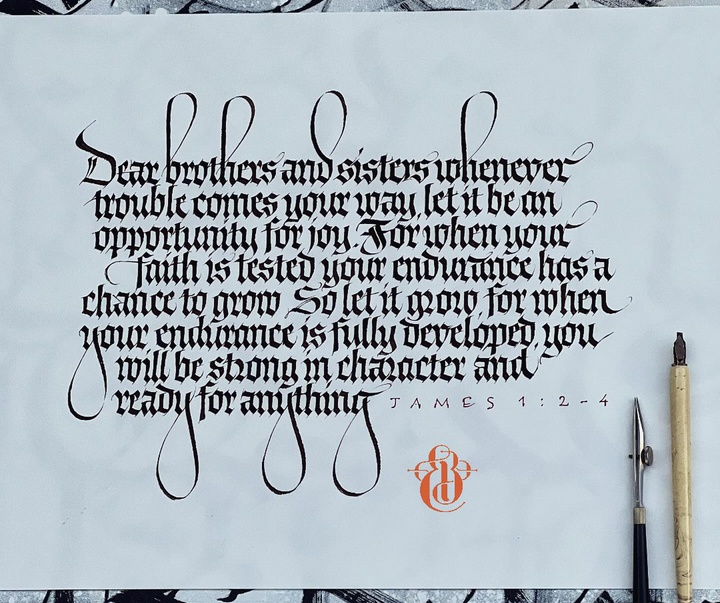 Dear brothers and sisters whenever
trouble comes your way, let it be an
opportunity for joy. For when your
faith is tested your endurance has a
chance to grow So let it grow, for when
your endurance is fully developed, you
will be strong in character and
ready for anything JAMES 1:2-4